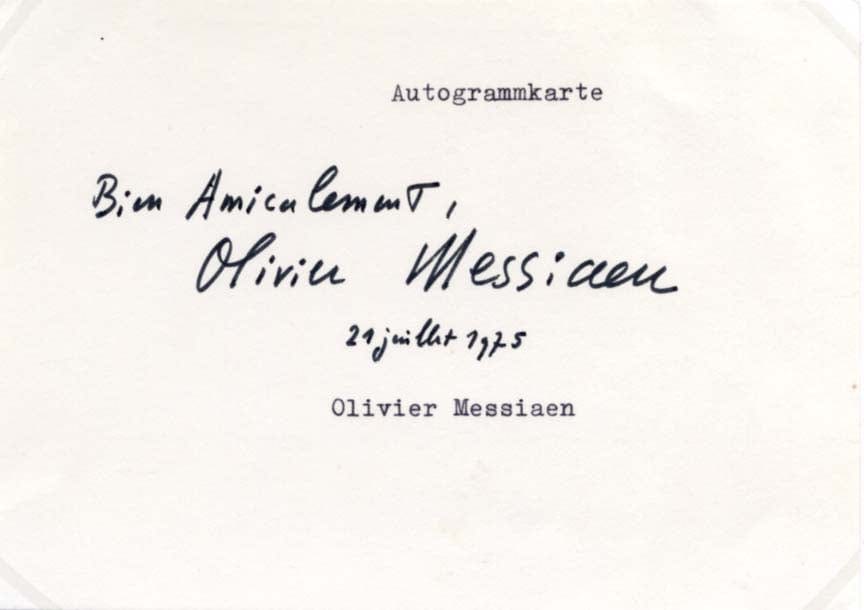 Autogrammkarte
Bien Amicalement,
Olivier Messiaen
21 juillet 1975
Olivier Messiaen